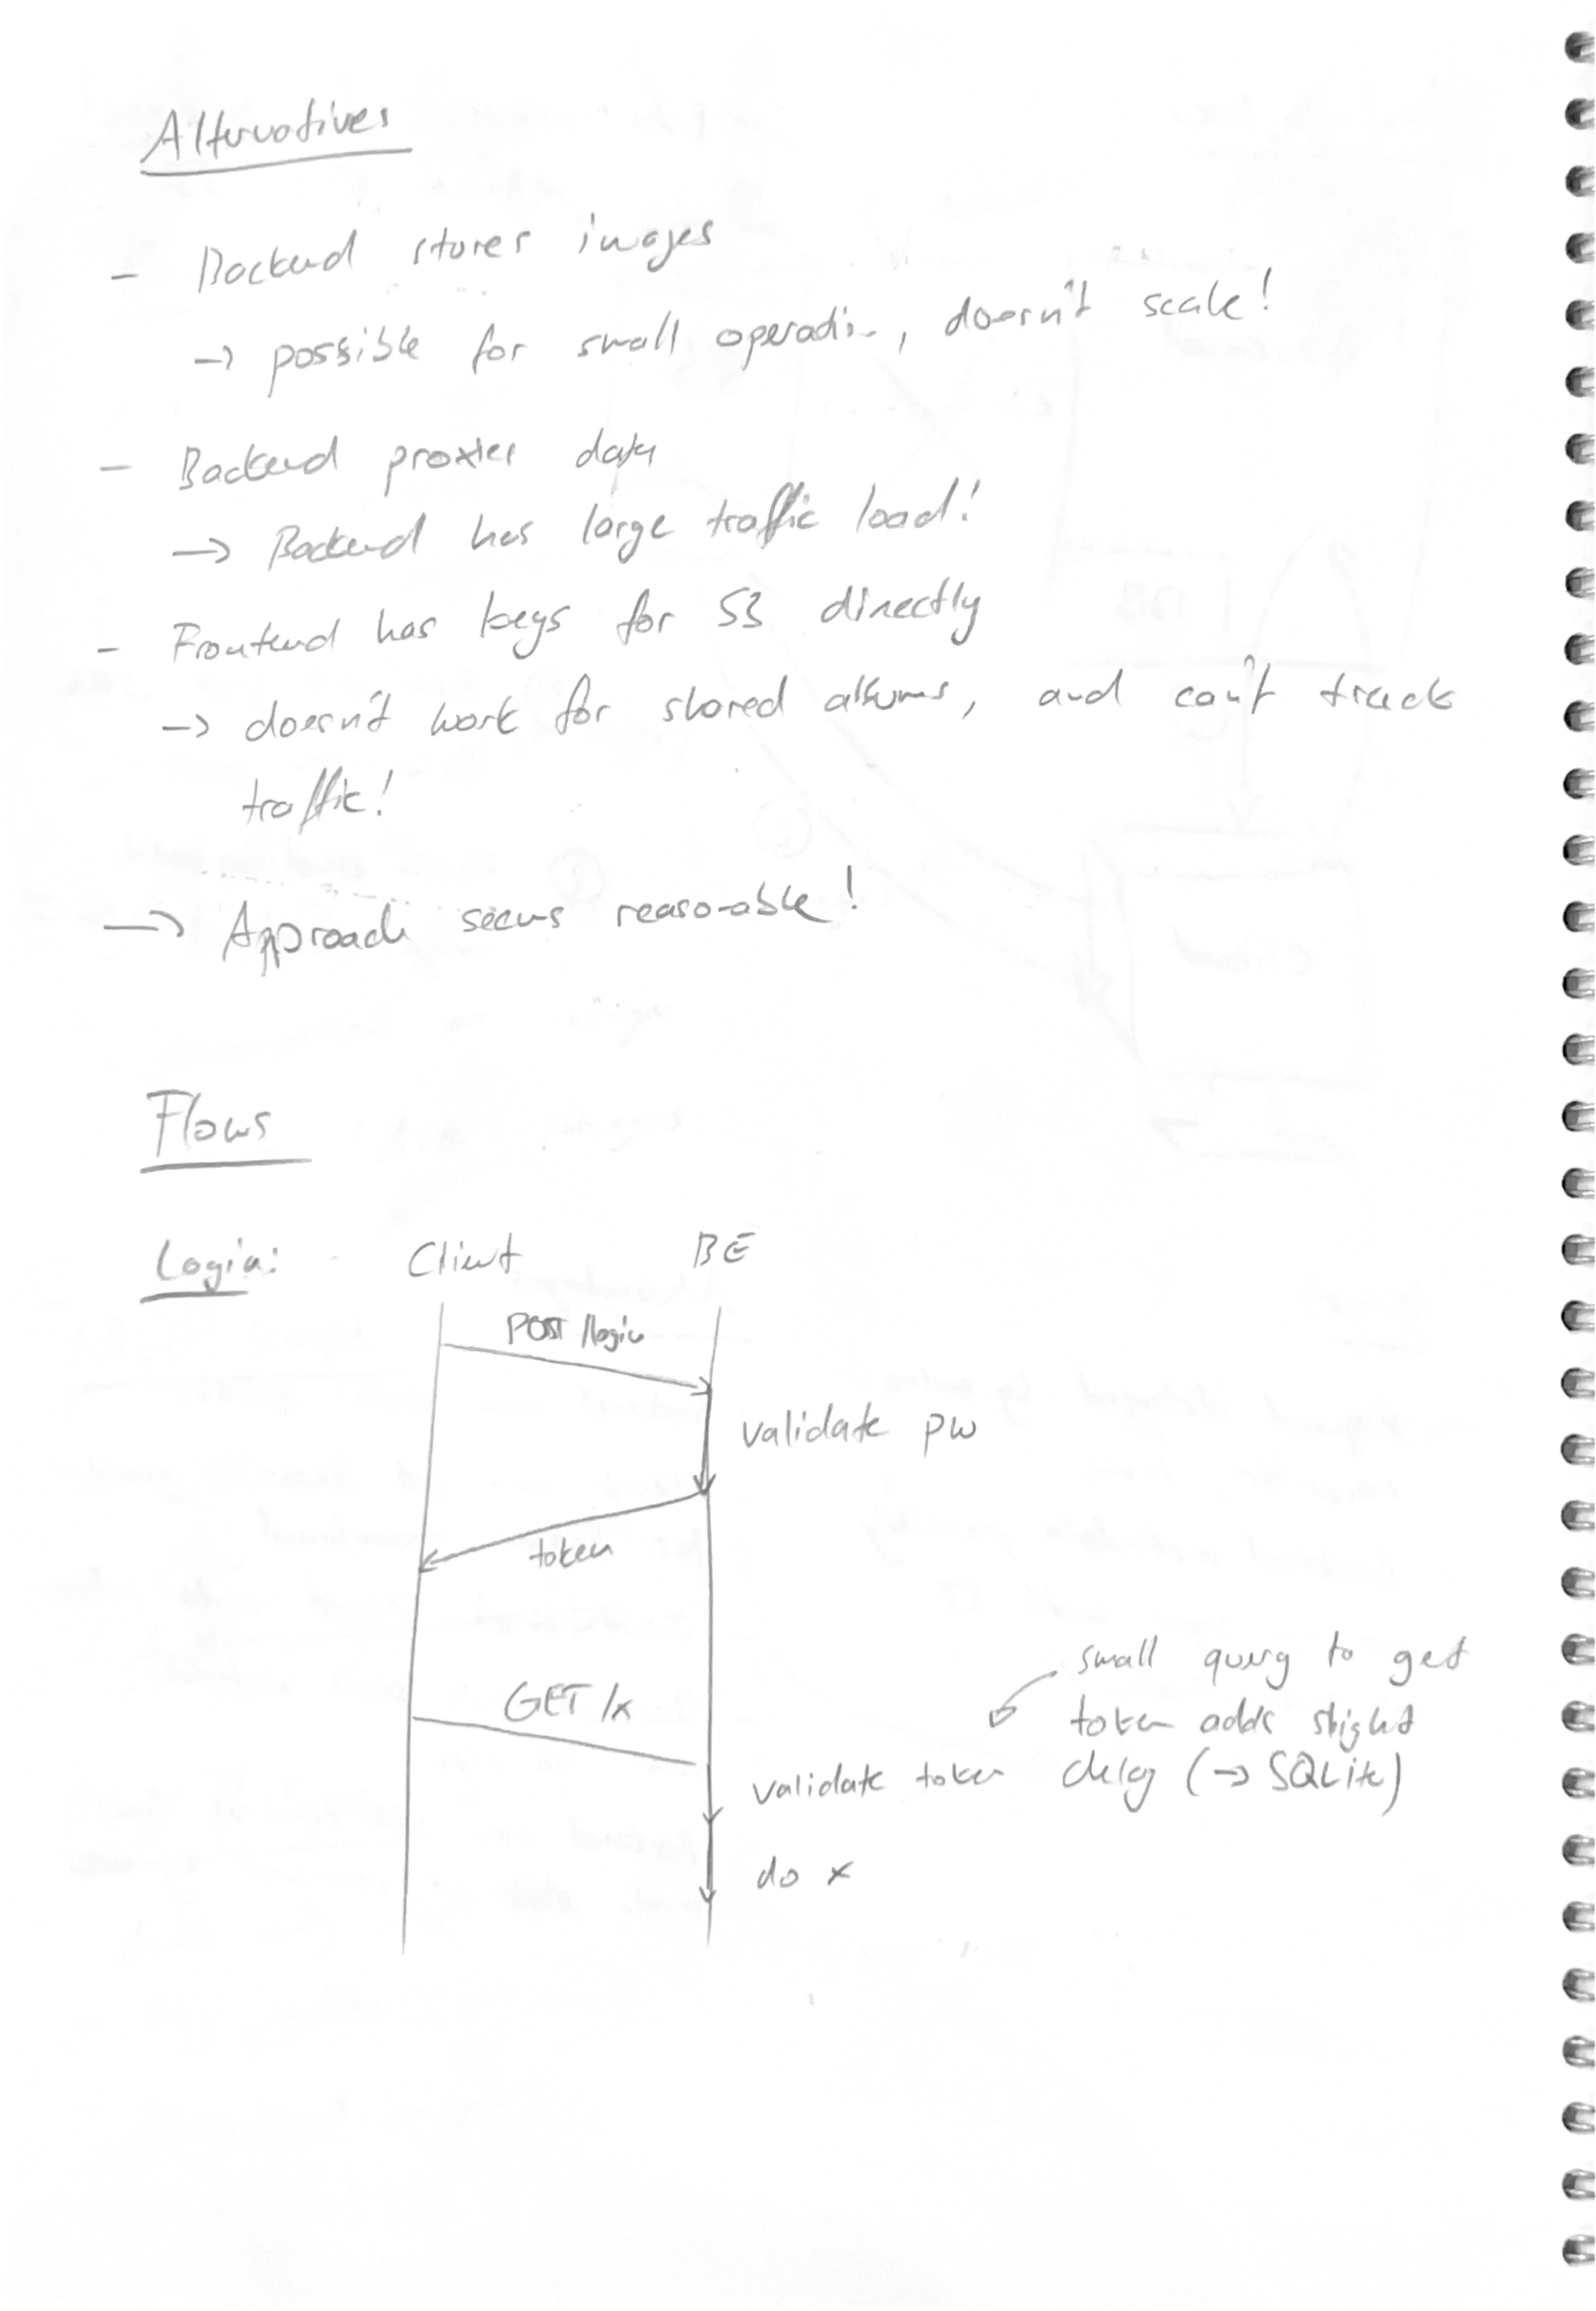 Alternatives
- Backend stores images
→ possible for small operation, doesn't scale!
- Backend proxies data
→ Backend has large traffic load!
- Frontend has keys for S3 directly
→ doesn't work for shared albums, and can't track
traffic!
→ Approach seems reasonable!
Flows
Login: Client BE
POST /login
validate pw
token
small query to get
GET /x
token adds slight
validate token delay (→ SQLite)
do x